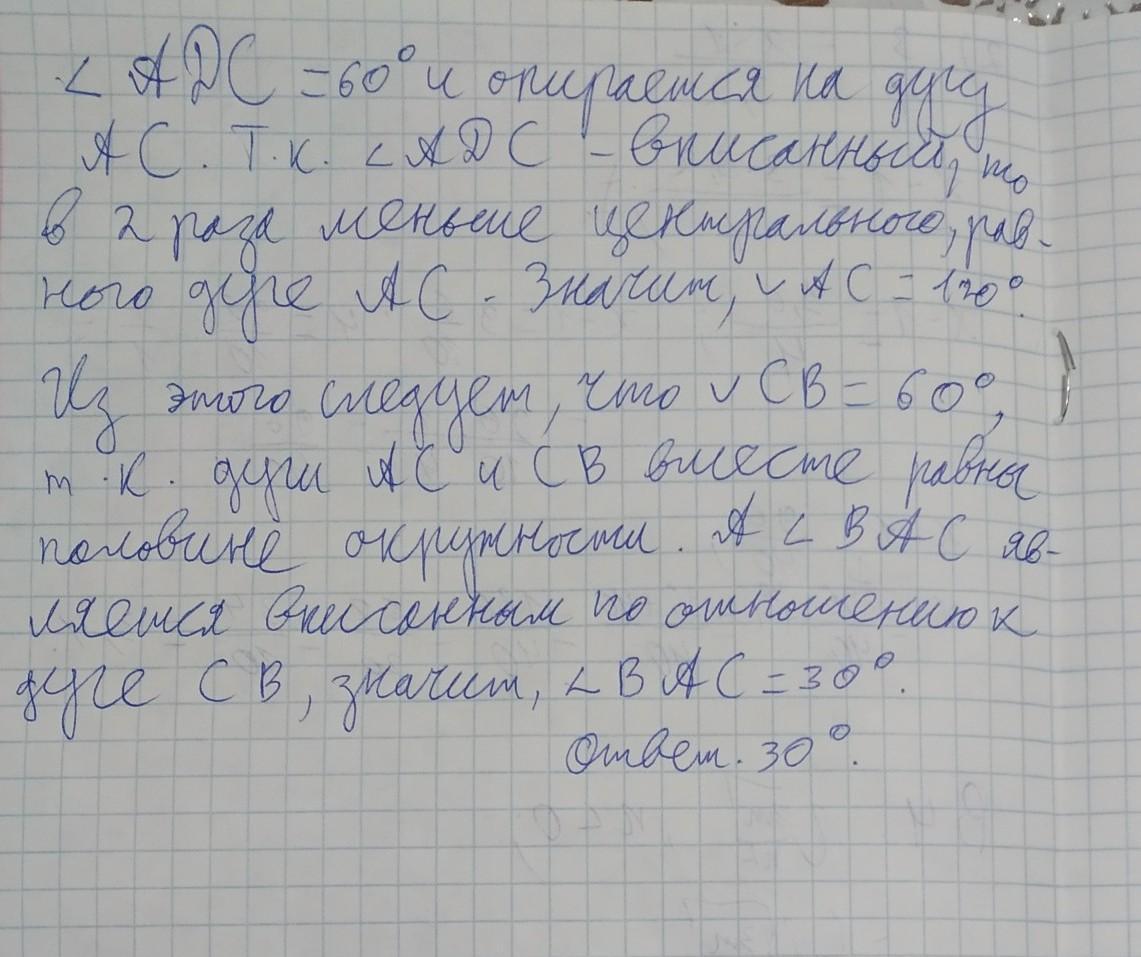 ∠ ADC = 60° и опирается на дугу
AC. Т.к. ∠ADC - вписанный, то
в 2 раза меньше центрального, рав-
ного дуге AC. Значит, ◡AC = 120°.
Из этого следует, что ◡CB = 60°,
т.к. дуги AC и CB вместе равны
половине окружности. А ∠BAC яв-
ляется вписанным по отношению к
дуге CB, значит, ∠BAC = 30°.
Ответ. 30°.